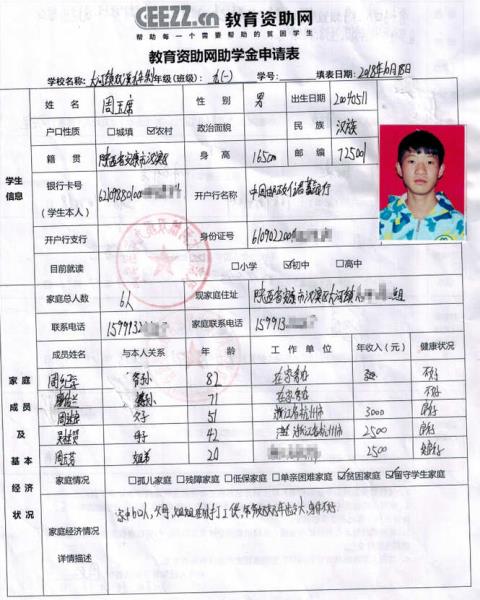 CEEZZ.cn 教育资助网
帮助每一个需要帮助的贫困学生
教育资助网助学金申请表
学校名称: 年级(班级): 九(一) 学号: 填表日期: 2018年10月18日
学生信息
姓名 周玉席 性别 男 出生日期 20040511
户口性质 □城填 ☑农村 政治面貌 民族 汉族
籍贯 陕西省安康市汉滨区 身高 165cm 邮编 725001
银行卡号 (学生本人) 62109850100 开户行名称 中国邮政储蓄银行
开户行支行 身份证号 610902200
目前就读 □小学 ☑初中 □高中
家庭成员及基本经济状况
家庭总人数 6人 现家庭住址 陕西省安康市汉滨区大河镇 组
联系电话 159913 家庭联系电话 159913
成员姓名 与本人关系 年龄 工作单位 年收入(元) 健康状况
82 在家务农 不好
71 在家务农 不好
父子 51 浙江省杭州市 3000 良好
母子 42 浙江省杭州市 2500 良好
姐弟 20 2500
家庭情况 □孤儿家庭 □残障家庭 □低保家庭 □单亲困难家庭 ☑贫困家庭 ☑留守学生家庭
家庭经济情况
详情描述
家中6口人,父母,姐姐在外打工